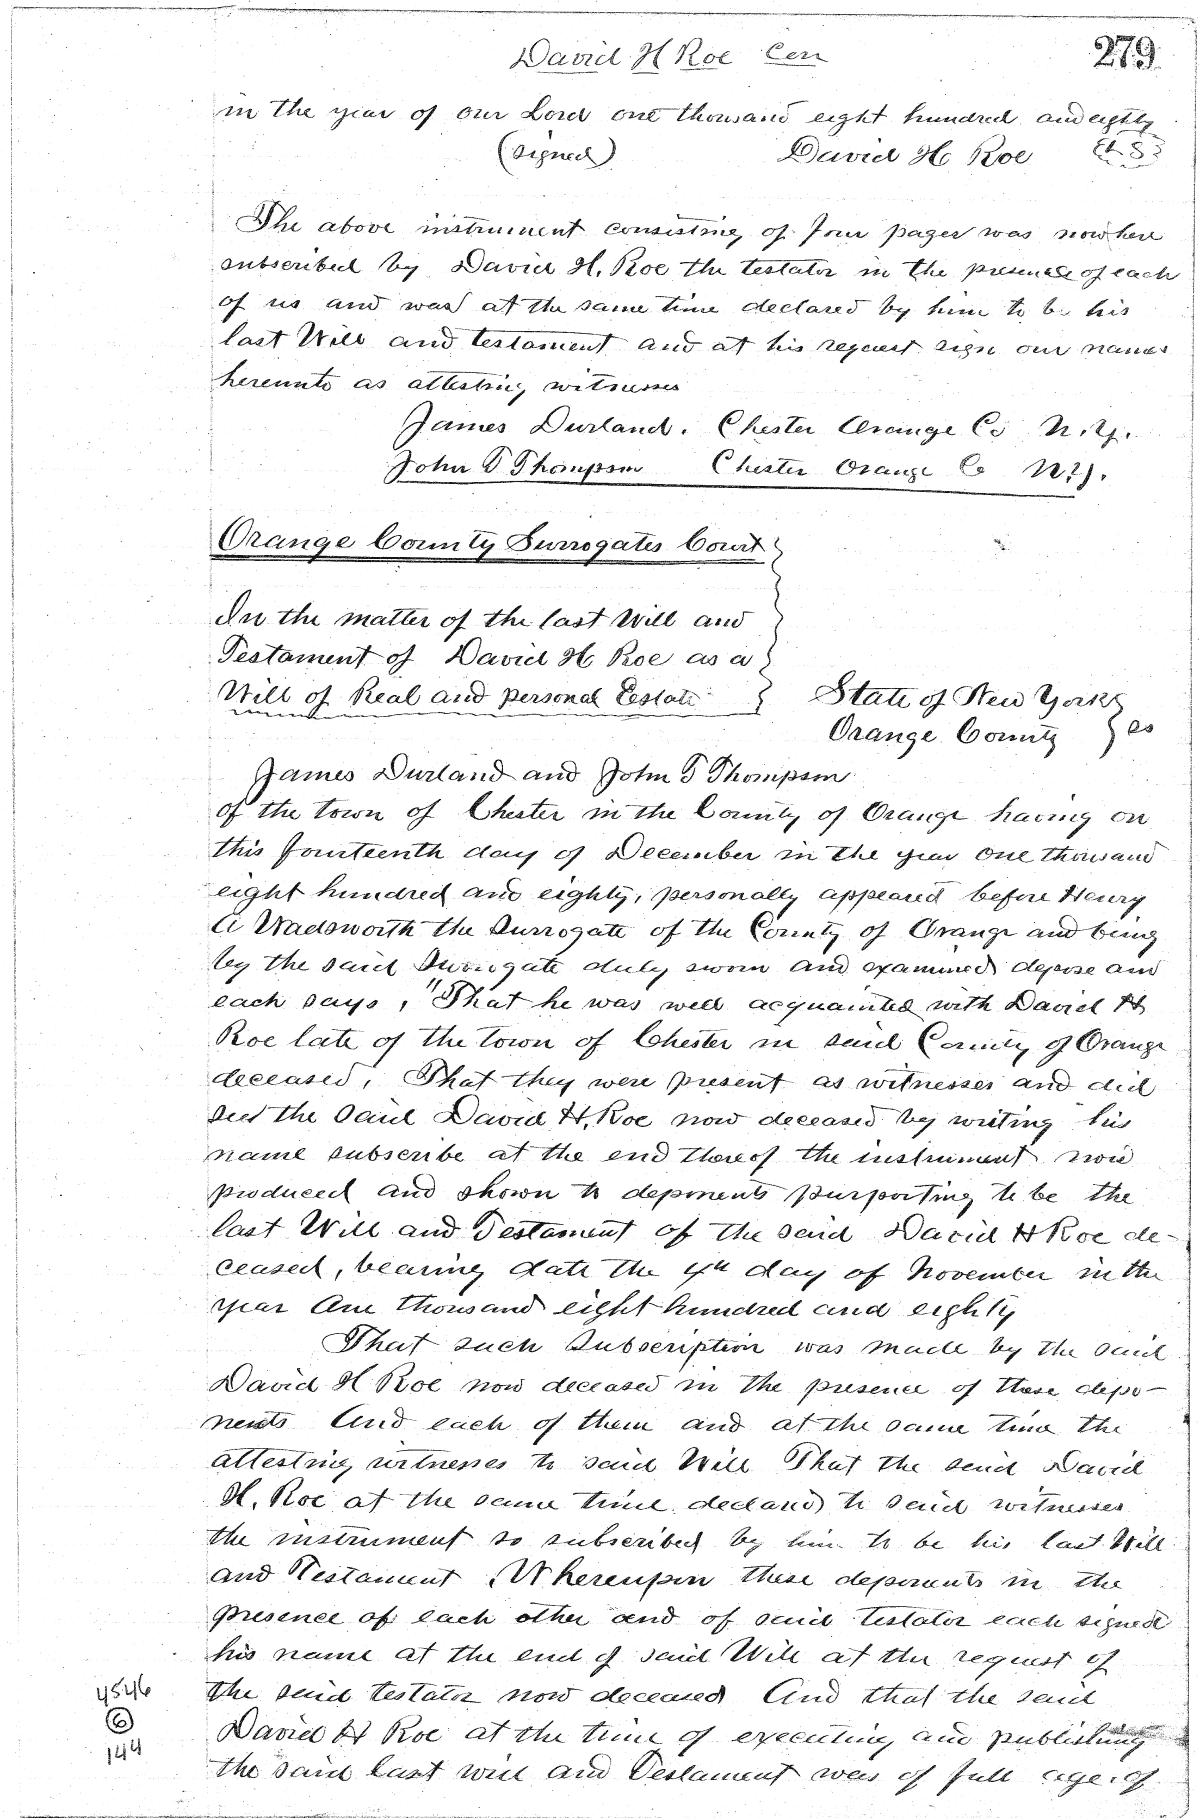 David H Roe Con 279
in the year of our Lord one thousand eight hundred and eighty
(signed) David H. Roe {L S}
The above instrument consisting of four pages was now here
subscribed by David H. Roe the testator in the presence of each
of us and was at the same time declared by him to be his
last Will and testament and at his request sign our names
hereunto as attesting witnesses
James Durland. Chester Orange Co N.Y.
John T Thompson Chester Orange Co N.Y.
Orange County Surrogates Court
In the matter of the last Will and
Testament of David H Roe as a
Will of Real and personal Estate
State of New York
Orange County } ss
James Durland and John T Thompson
of the town of Chester in the County of Orange having on
this fourteenth day of December in the year one thousand
eight hundred and eighty, personally appeared before Henry
A Wadsworth the Surrogate of the County of Orange and being
by the said Surrogate duly sworn and examined depose and
each says, "That he was well acquainted with David H
Roe late of the town of Chester in said County of Orange
deceased, That they were present as witnesses and did
see the said David H. Roe now deceased by writing his
name subscribe at the end thereof the instrument now
produced and shown to deponents purporting to be the
last Will and Testament of the said David H Roe de-
ceased, bearing date the 4th day of November in the
year One thousand eight hundred and eighty
That such Subscription was made by the said
David H Roe now deceased in the presence of these depo-
nents And each of them and at the same time the
attesting witnesses to said Will That the said David
H. Roe at the same time declared to said witnesses
the instrument so subscribed by him to be his last Will
and Testament, Whereupon these deponents in the
presence of each other and of said testator each signed
his name at the end of said Will at the request of
the said testator now deceased And that the said
David H Roe at the time of executing and publishing
the said last will and Testament was of full age, of
4546
6
144